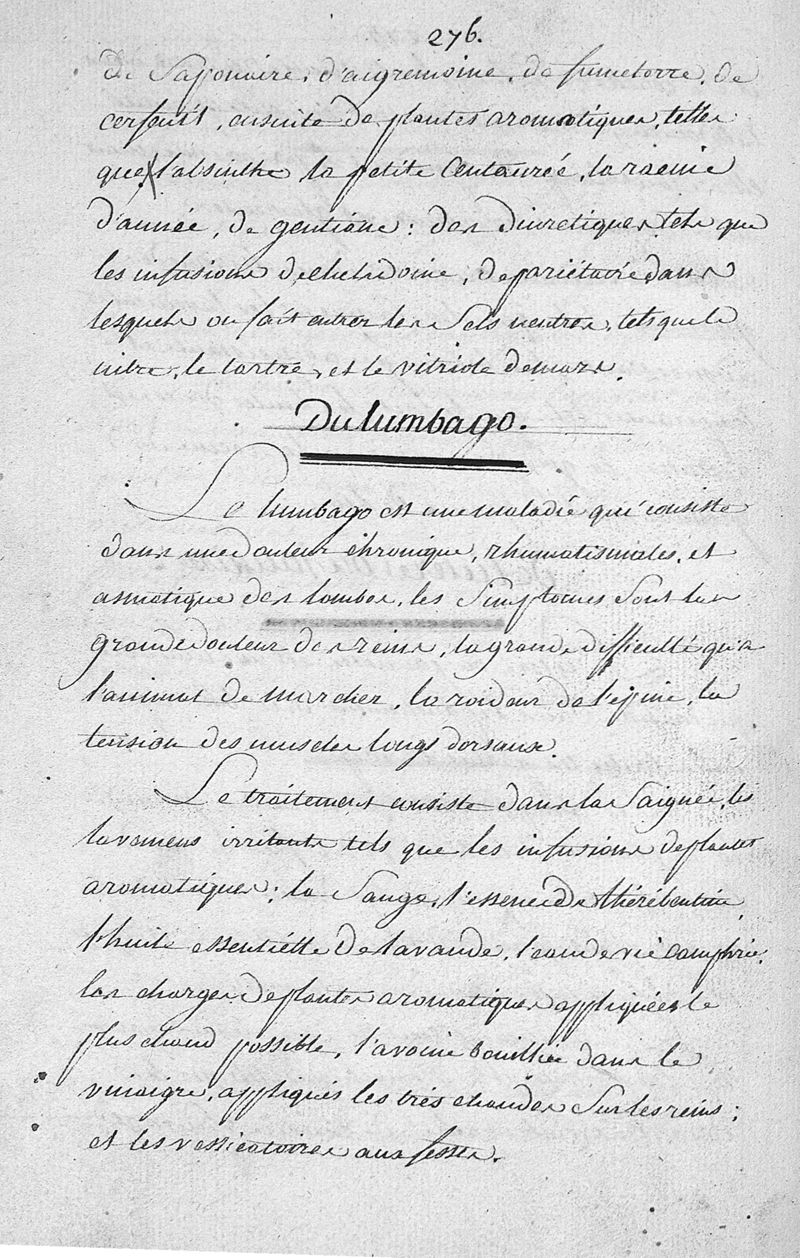 276.
De Saponaire, d'aigremoine, de fumeterre, de
cerfeuil, ensuite de plantes aromatiques, telles
que l'absinthe la petite Centaurée, la racine
d'aunée, de gentiane : des diuretiques tels que
les infusions de chelidoine, de pariétaire dans
lesquels on fait entrer les Sels neutres, tels que le
nitre, le tartre, et le vitriole de mars.
Du lumbago.
Le lumbago est une maladie qui consiste
dans une douleur chronique, rhumatismales, et
asmatique des lombes, les Simptomes Sont la
grande douleur des reins, la grande difficulté qu'a
l'animal de marcher, la roideur de l'épine, la
tension des muscles longs dorsaux.
Le traitement consiste dans la Saignée, les
lavemens irritants tels que les infusions de plantes
aromatiques ; la Sauge, l'essence de thérébentine,
l'huile essentiélle de lavande, l'eau de vie camphrée.
les charges de plantes aromatiques appliquées le
plus chaud possible, l'avoine bouillie dans le
vinaigre, appliqués les très chaudes Sur les reins ;
et les vessicatoires aux fesses.